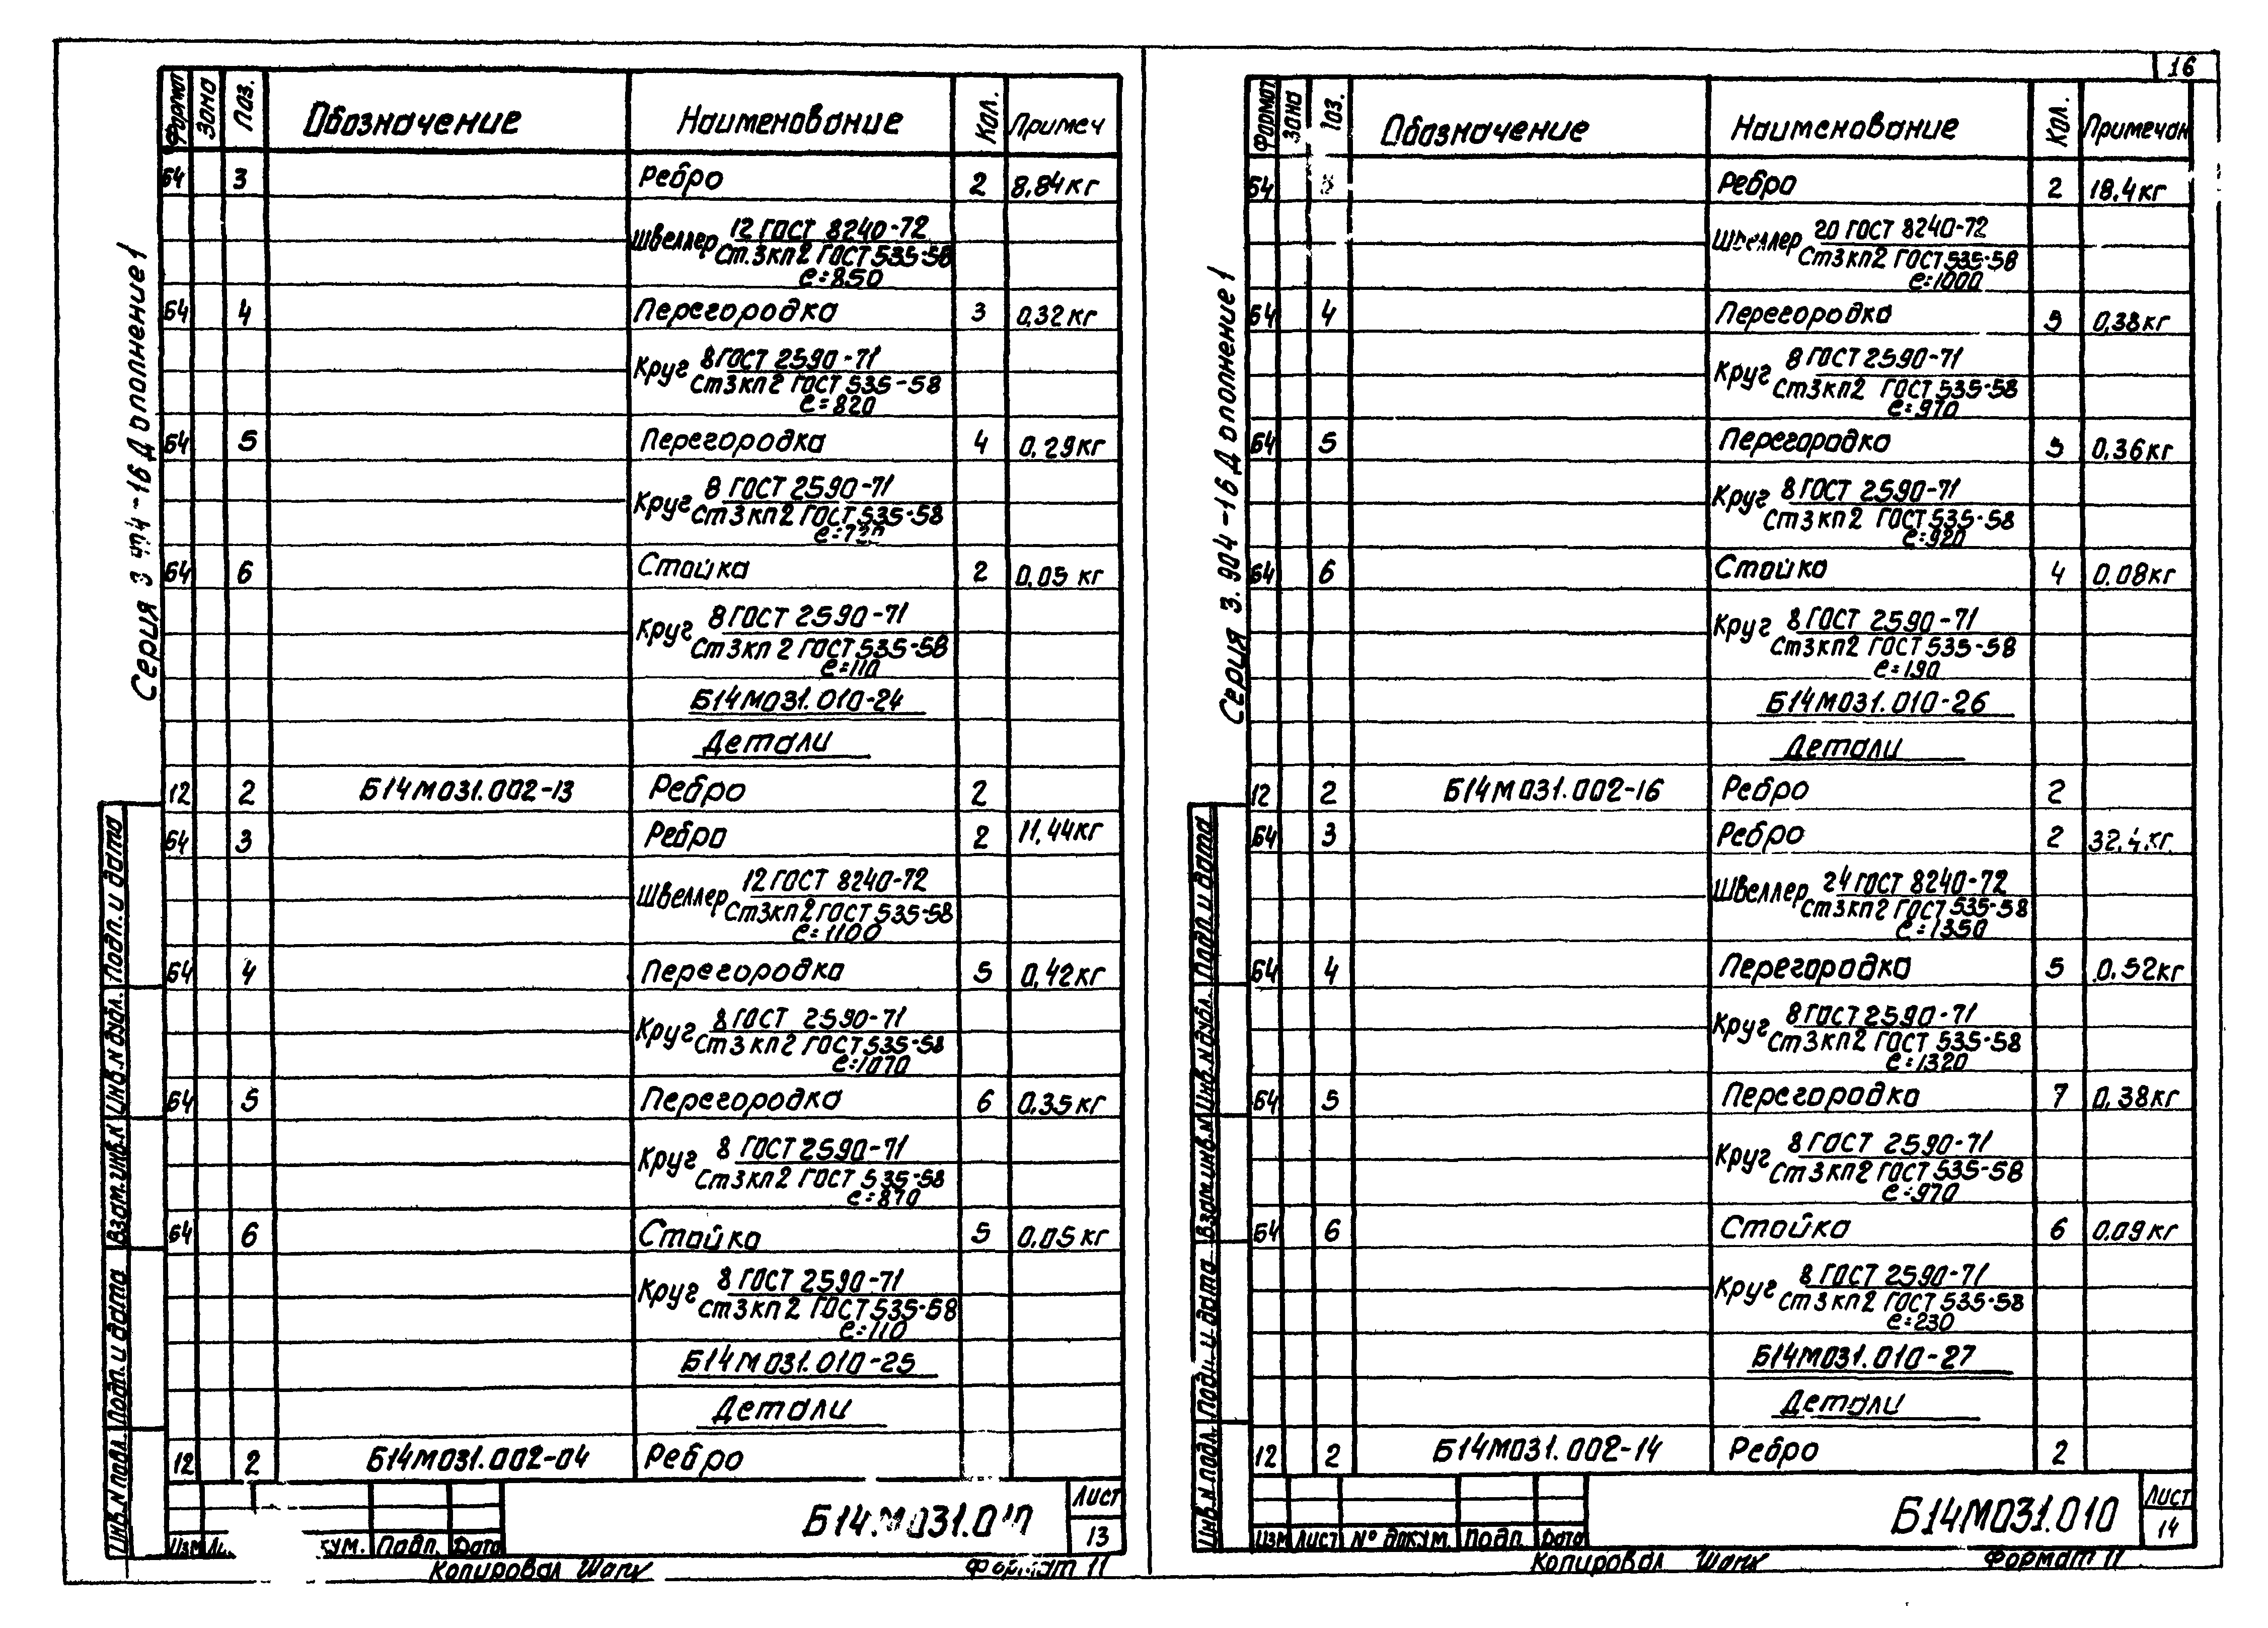 16
Формат Зона Поз. Обозначение Наименование Кол. Примеч
Б4 3 Ребро 2 8,84кг
Швеллер 12 ГОСТ 8240-72
Ст.3кп2 ГОСТ 535-58
е=850
Б4 4 Перегородка 3 0,32кг
Круг 8 ГОСТ 2590-71
Ст3кп2 ГОСТ 535-58
е=820
Б4 5 Перегородка 4 0,29кг
Круг 8 ГОСТ 2590-71
Ст3кп2 ГОСТ 535-58
Б4 6 Стойка 2 0,05 кг
Круг 8 ГОСТ 2590-71
Ст3кп2 ГОСТ 535-58
е=110
Б14М031.010-24
Детали
12 2 Б14М031.002-13 Ребро 2
Б4 3 Ребро 2 11,44кг
Швеллер 12 ГОСТ 8240-72
Ст3кп2 ГОСТ 535-58
е=1100
Б4 4 Перегородка 5 0,42кг
Круг 8 ГОСТ 2590-71
Ст3кп2 ГОСТ 535-58
е=1070
Б4 5 Перегородка 6 0,35кг
Круг 8 ГОСТ 2590-71
Ст3кп2 ГОСТ 535-58
е=870
Б4 6 Стойка 5 0,05кг
Круг 8 ГОСТ 2590-71
Ст3кп2 ГОСТ 535-58
е=110
Б14М031.010-25
Детали
12 2 Б14М031.002-04 Ребро
Серия Дополнение 1
Инв.N подл. Подп. и дата Взам.инв.N Инв.N дубл. Подп. и дата
Изм Подп. Дата
Б14М031.010
Лист
13
Копировал Шапк Формат 11
Формат Зона Поз. Обозначение Наименование Кол. Примечан
Б4 Ребро 2 18.4кг
Швеллер 20 ГОСТ 8240-72
Ст3кп2 ГОСТ 535-58
е=1000
Б4 4 Перегородка 5 0,38кг
Круг 8 ГОСТ 2590-71
Ст3кп2 ГОСТ 535-58
е=970
Б4 5 Перегородка 5 0,36кг
Круг 8 ГОСТ 2590-71
Ст3кп2 ГОСТ 535-58
е=920
Б4 6 Стойка 4 0,08кг
Круг 8 ГОСТ 2590-71
Ст3кп2 ГОСТ 535-58
е=190
Б14М031.010-26
Детали
12 2 Б14М031.002-16 Ребро 2
Б4 3 Ребро 2 32.4.кг.
Швеллер 24 ГОСТ 8240-72
Ст3кп2 ГОСТ 535-58
е=1350
Б4 4 Перегородка 5 0.52кг
Круг 8 ГОСТ 2590-71
Ст3кп2 ГОСТ 535-58
е=1320
Б4 5 Перегородка 7 0,38кг
Круг 8 ГОСТ 2590-71
Ст3кп2 ГОСТ 535-58
е=970
Б4 6 Стойка 6 0.09кг
Круг 8 ГОСТ 2590-71
Ст3кп2 ГОСТ 535-58
е=230
Б14М031.010-27
Детали
12 2 Б14М031.002-14 Ребро 2
Серия 3.904-16 Дополнение 1
Инв.N подл. Подп. и дата Взам.инв.N Инв.N дубл. Подп. и дата
Изм Лист N° докум. Подп. Дата
Б14М031.010
Лист
14
Копировал Шапк Формат 11